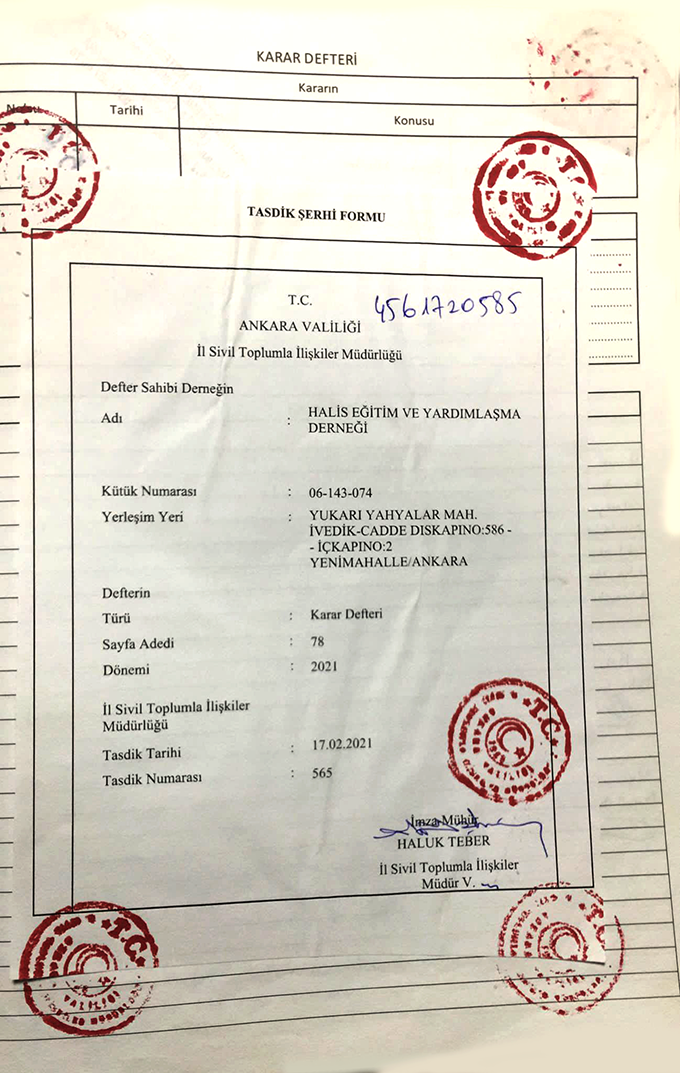 KARAR DEFTERİ
Kararın
Tarihi
Konusu
TASDİK ŞERHİ FORMU
T.C.
4561720585
ANKARA VALİLİĞİ
İl Sivil Toplumla İlişkiler Müdürlüğü
Defter Sahibi Derneğin
Adı : HALİS EĞİTİM VE YARDIMLAŞMA
DERNEĞİ
Kütük Numarası : 06-143-074
Yerleşim Yeri : YUKARI YAHYALAR MAH.
İVEDİK-CADDE DISKAPINO:586 -
- İÇKAPINO:2
YENİMAHALLE/ANKARA
Defterin
Türü : Karar Defteri
Sayfa Adedi : 78
Dönemi : 2021
İl Sivil Toplumla İlişkiler
Müdürlüğü
Tasdik Tarihi : 17.02.2021
Tasdik Numarası : 565
T.C.
VALİLİĞİ
İmza-Mühür
HALUK TEBER
İl Sivil Toplumla İlişkiler
Müdür V.
T.C.
VALİLİĞİ